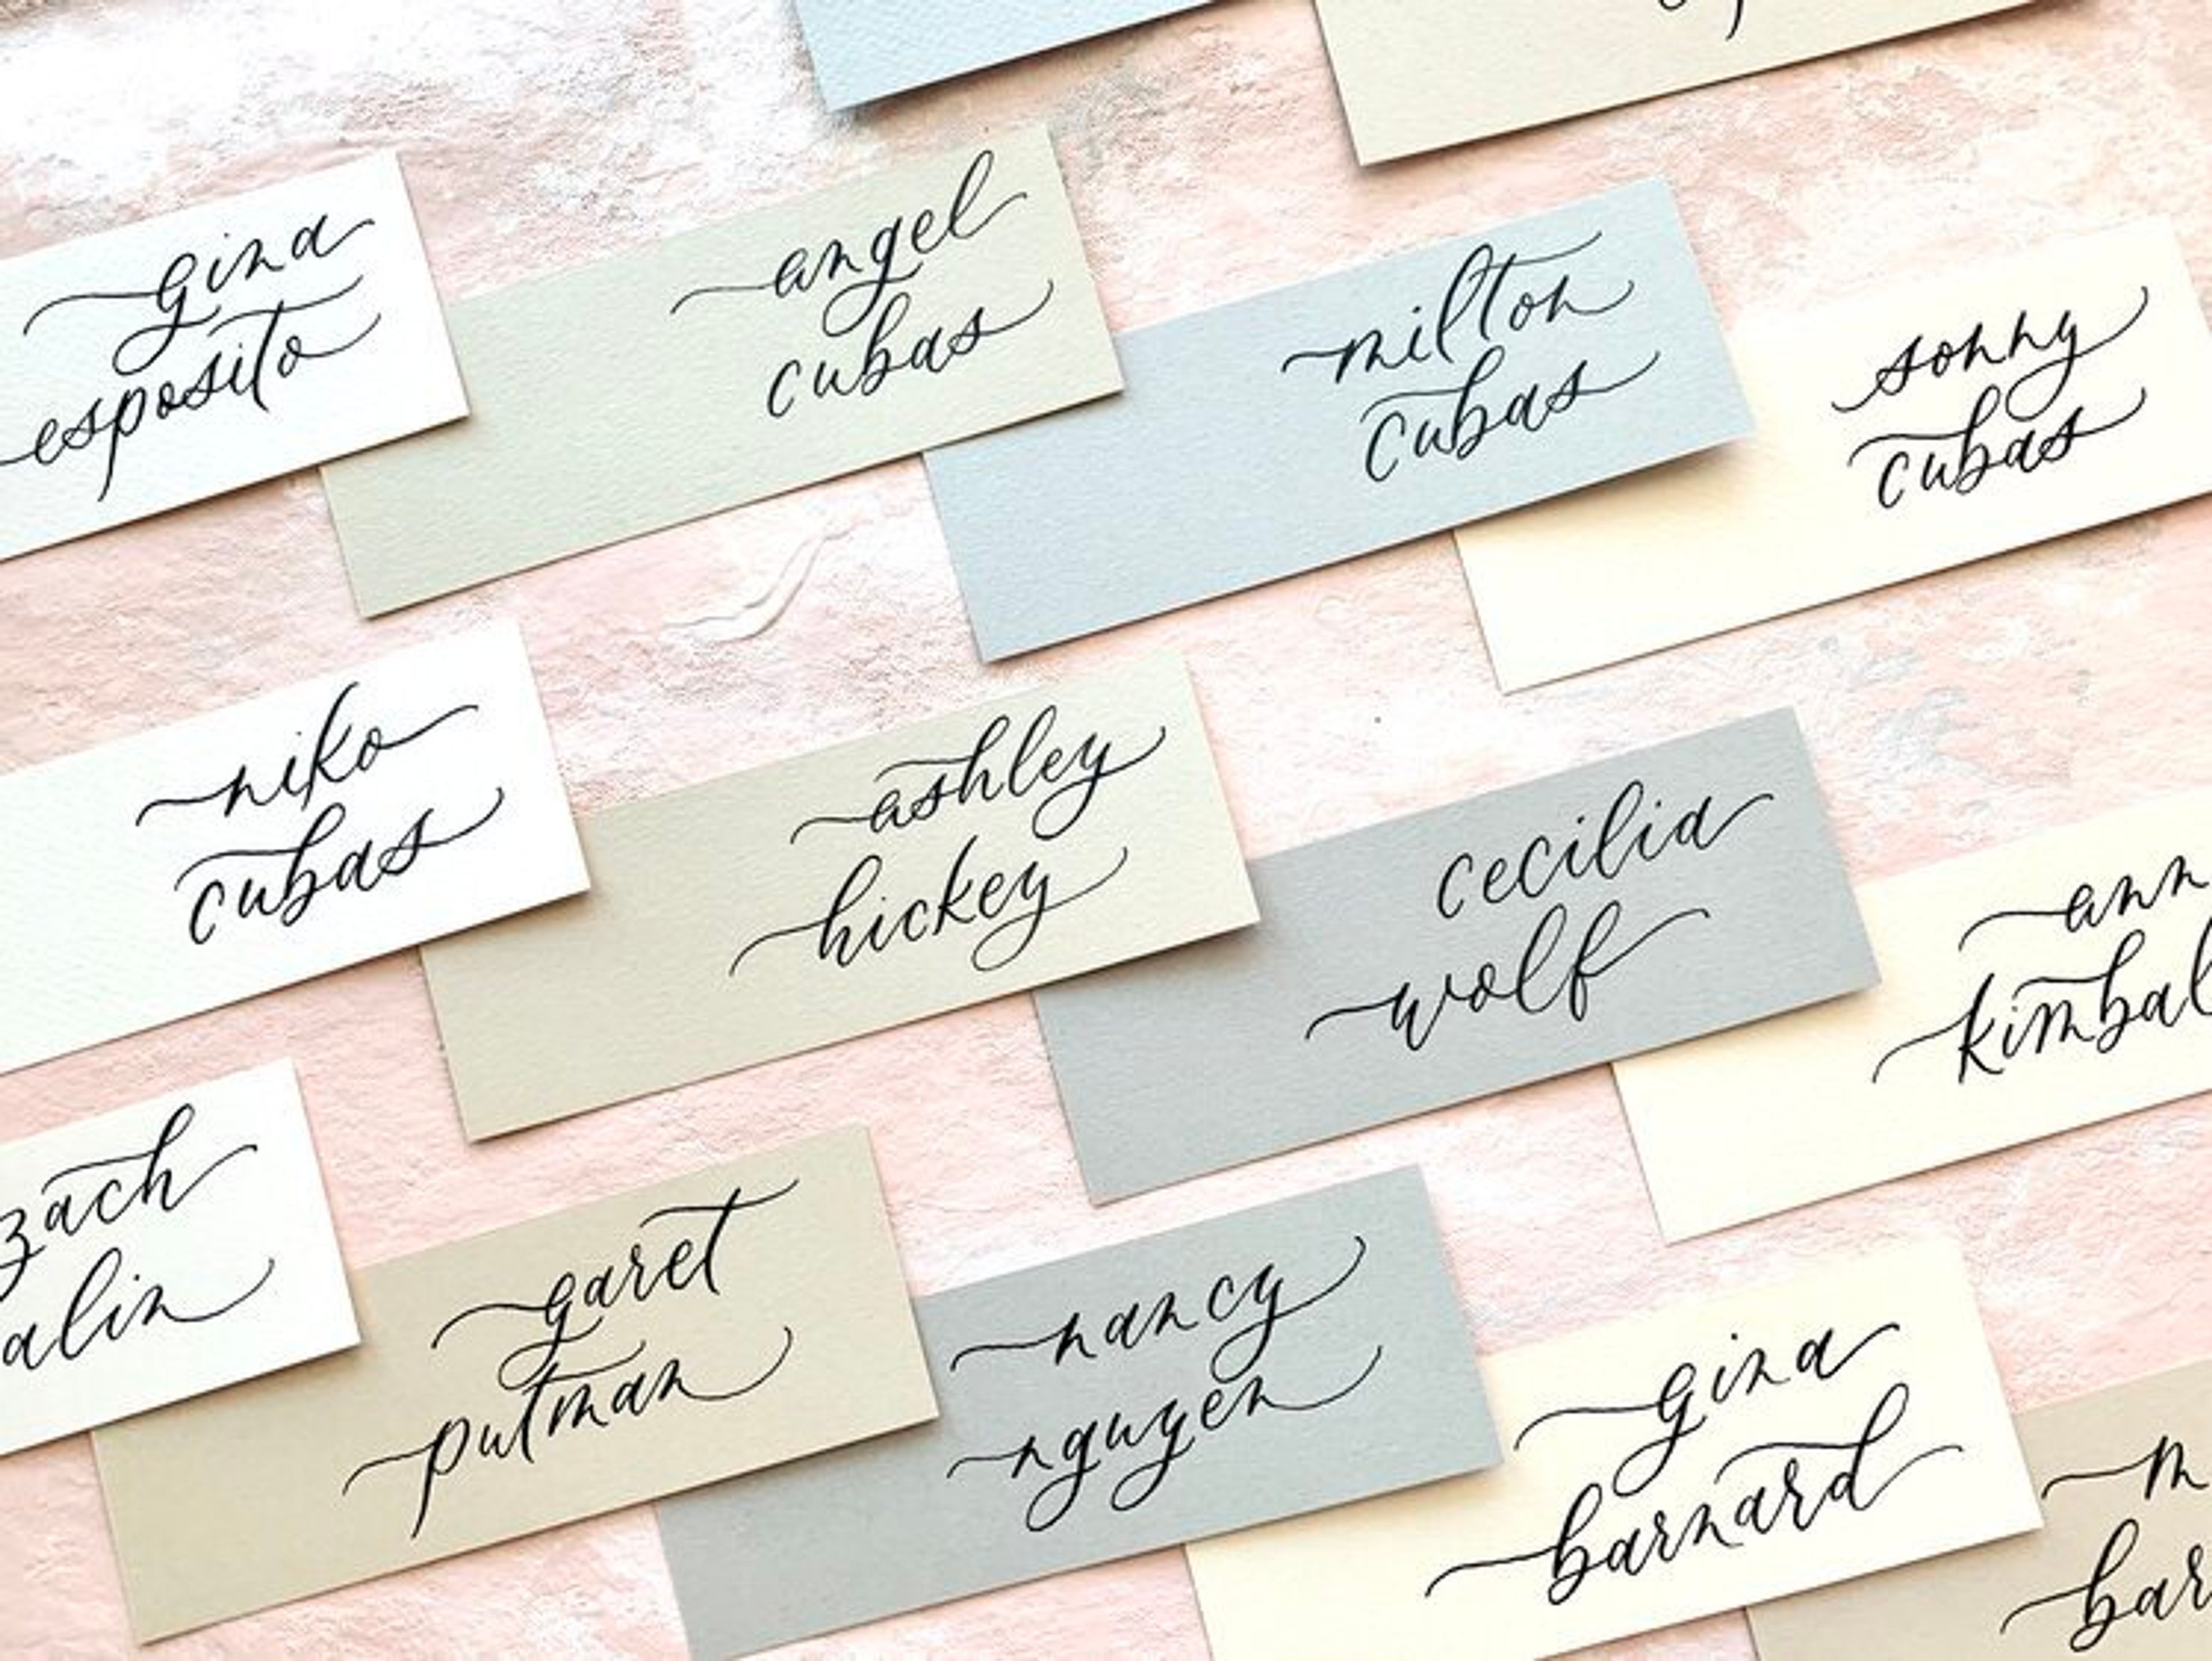 gina
esposito
angel
cubas
milton
cubas
sonny
cubas
niko
cubas
ashley
hickey
cecilia
wolf
ann
zach
garet
putman
nancy
nguyen
gina
barnard